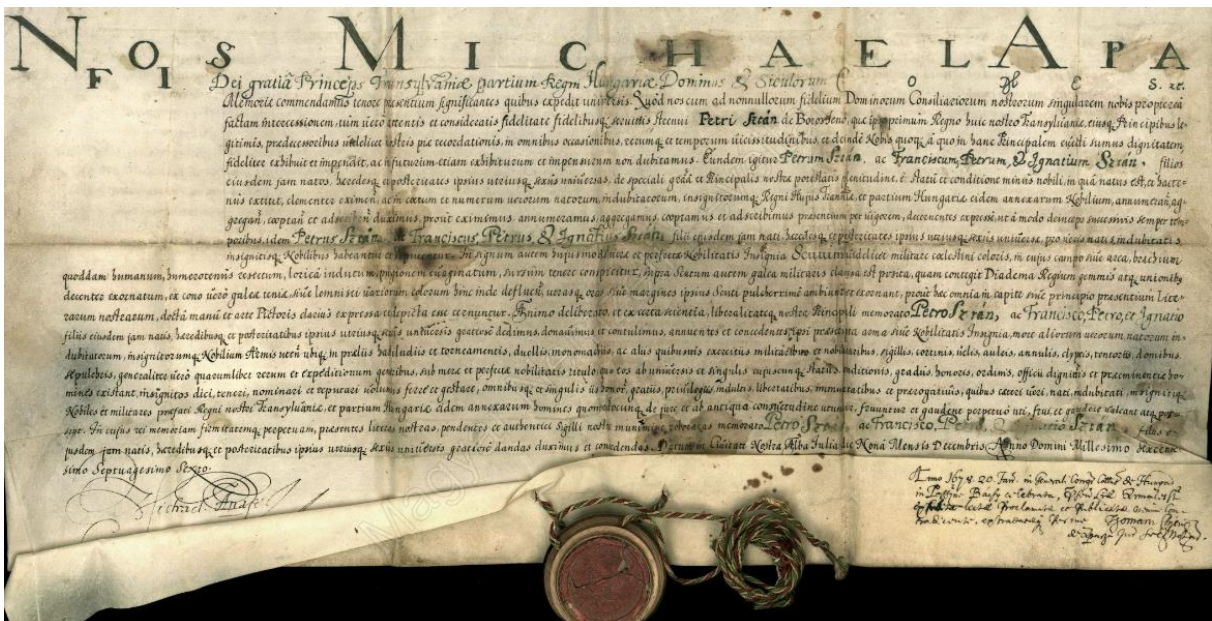 NOS MICHAEL APAFI
Dei gratiâ Princeps Transylvaniæ partium Regni Hungariæ Dominus & Siculorum Comes. &c.
Memoriæ commendamus tenore præsentium significantes quibus expedit universis. Quòd nos cum ad nonnullorum fidelium Dominorum Consiliariorum nostrorum singularem nobis propterea
factam intercessionem, tum verò attentis et consideratis fidelitate fidelibusq servitiis strenui Petri Sztán de Borosjenő, quæ ipse primum Regno huic nostro Transylvaniæ, eiusq Principibus le-
gitimis, prædecessoribus videlicet nostris piæ recordationis, in omnibus occasionibus, rerumq et temporum vicissitudinibus, et deindè Nobis quoq, à quo in hanc Principalem evecti sumus dignitatem
fideliter exhibuit et impendit, ac in futurum etiam exhibiturum et impensurum non dubitamus. Eundem igitur Petrum Sztán, ac Franciscum, Petrum, & Ignatium Sztán. filios
eiusdem jam natos, hæredesq et posteritates ipsius utriusq sexûs universas, de speciali gratiâ et Principalis nostræ potestatis plenitudine, è statu et conditione minùs nobili, in quâ natus est, et hacte-
nùs extitit, clementer eximen, ac in cœtum et numerum verorum natorum, indubitatorum, insignitorumq Regni Hujus Tranniæ, et partium Hungariæ eidem annexarum Nobilium, annumeran, ag-
gregan, cooptan et adscriben duximus, prout eximimus, annumeramus, aggregamus, cooptamus et adscribimus præsentium per vigorem, decernentes expressè, ut à modo deinceps successivis semper tem-
poribus, idem Petrus Sztán, ac Franciscus, Petrus, & Ignatius Sztán filii ejusdem jam nati, hæredesq et posteritates ipsius utriusq sexûs universæ, pro veris natis, indubitatis,
insignitisq Nobilibus habeantur et In signum autem hujusmodi veræ et perfectæ Nobilitatis Insignia Scutum videlicet militare cœlestini coloris, in cujus campo sive area, brachium
quoddam humanum, humerotenùs resectum, loricâ indutum, pugionem evaginatum, sursum tenere conspicitur, supra Scutum autem galea militaris clausa est posita, quam contegit Diadema Regium gemmis atq unionibus
decenter exornatum, ex cono verò galeæ teniæ, sive lemnisci variorum colorum hinc inde defluen, utrasq oras sive margines ipsius Scuti pulcherrimè ambiunt et exornant, prout hæc omnia in capite sive principio præsentium lite-
rarum nostrarum, doctâ manu et arte Pictoris clariùs expressa et depicta esse cernuntur. Animo deliberato, et ex certa scientia, liberalitateq nostra Principali memorato Petro Sztán, ac Francisco, Petro, et Ignatio
filiis eiusdem jam natis, hæredibusq et posteritatibus ipsius utriusq sexûs universis gratiosè dedimus, donavimus et contulimus, annuentes et concedentes, ut ipsi præscripta arma sive Nobilitatis Insignia, more aliorum verorum natorum in-
dubitatorum, insignitorumq Nobilium Armis utentium ubiq in præliis hastiludiis et torneamentis, duellis, monomachiis, ac aliis quibusvis exercitiis militaribus et nobilitaribus, sigillis, cortinis, velis, aulæis, annulis, clypeis, tentoriis, domibus
sepulchris, generaliter verò quarumlibet rerum et expeditionum generibus, sub meræ et perfectæ nobilitatis titulo, quo eos ab universis et singulis cujuscunq statûs, conditionis, gradûs, honoris, ordinis, officii dignitatis et præeminentiæ ho-
mines existant, insignitos dici, teneri, nominari et reputari volumus ferre et gestare, omnibusq et singulis iis honoribus, gratiis, privilegiis, indultis, libertatibus, immunitatibus et prærogativis, quibus cæteri veri, nati, indubitati, insignitiq
Nobiles et militares præfati Regni nostri Transylvaniæ, et partium Hungariæ eidem annexarum homines quomodocunq de jure et ab antiqua consvetudine utuntur, fruuntur et gaudent perpetuò uti, frui, et gaudere valeant atq pos-
sint. In cujus rei memoriam firmitatemq perpetuam, præsentes literas nostras, pendentis et authentici sigilli nostri munimine roboratas memorato Petro Sztán, ac Francisco, Petro, Ignatio Sztán. filiis e-
jusdem jam natis, hæredibusq et posteritatibus ipsius utriusq sexûs universis gratiosè dandas duximus et concedendas. Datum in Civitate Nostra Alba Julia Die Nonâ Mensis Decembris, Anno Domini Millesimo Sexcen-
simo Septuagesimo Sexto.
Michael Apafi
Anno 1678. 20. Jan. in Generali Congr. Cottus de Hunyad
in Possne Barfy celebrata,
lectæ Proclamatæ et Publicatæ nemine con-
tradicente, extradatæq per me Thomam